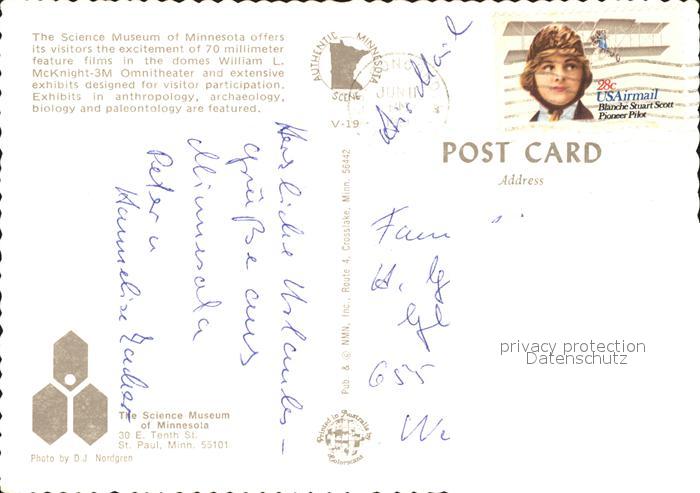 The Science Museum of Minnesota offers
its visitors the excitement of 70 millimeter
feature films in the domes William L.
McKnight-3M Omnitheater and extensive
exhibits designed for visitor participation.
Exhibits in anthropology, archaeology,
biology and paleontology are featured.
AUTHENTIC MINNESOTA
SCENE
V-19
JUN
28c
USAirmail
Blanche Stuart Scott
Pioneer Pilot
POST CARD
Address
Air Mail
Herzliche Urlaubs-
grüße aus
Minnesota
Peter u
Hannelise
Pub. & © NMN, Inc., Route 4, Crosslake, Minn. 56442
Fam
H.
655
We
privacy protection
Datenschutz
The Science Museum
of Minnesota
30 E. Tenth St.
St. Paul, Minn. 55101
Photo by D.J. Nordgren
Printed in Australia by
Colorscans